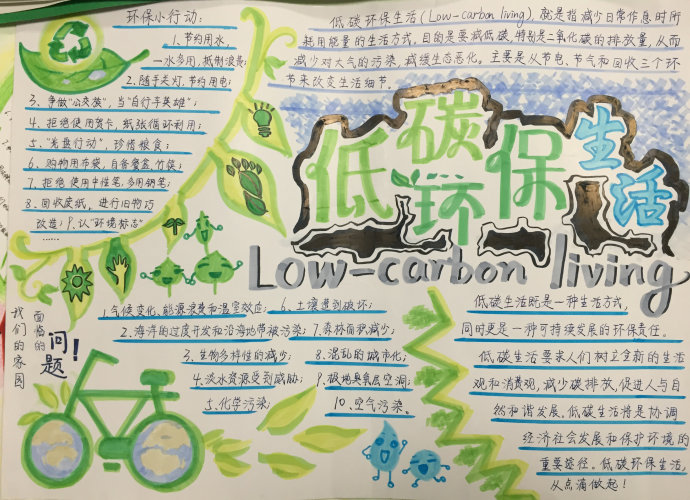 环保小行动：
1.节约用水，
一水多用，抵制浪费；
2.随手关灯，节约用电；
3、争做“公交族”，当“自行车英雄”；
4.拒绝使用贺卡，纸张循环利用；
5.“光盘行动”，珍惜粮食；
6.购物用布袋，自备餐盒、竹筷；
7.拒绝使用中性笔，多用钢笔；
8.回收废纸，进行旧物巧
改造；9.认“环境标志”
……
低碳环保生活(Low-carbon living)，就是指减少日常作息时所
耗用能量的生活方式。目的是要减低碳，特别是二氧化碳的排放量，从而
减少对大气的污染，减缓生态恶化。主要是从节电、节气和回收三个环
节来改变生活细节.
低碳环保生活
Low-carbon living
我们的家园
面临的
问题！
1.气候变化、能源浪费和温室效应；6、土壤遭到破坏；
2.海洋的过度开发和沿海地带被污染；7.森林面积减少；
3.生物多样性的减少；8.混乱的城市化；
4.淡水资源受到威胁；9.极地臭氧层空洞；
5.化学污染；10.空气污染。
低碳生活既是一种生活方式，
同时更是一种可持续发展的环保责任。
低碳生活要求人们树立全新的生活
观和消费观，减少碳排放，促进人与自
然和谐发展。低碳生活将是协调
经济社会发展和保护环境的
重要途径。低碳环保生活，
从点滴做起！